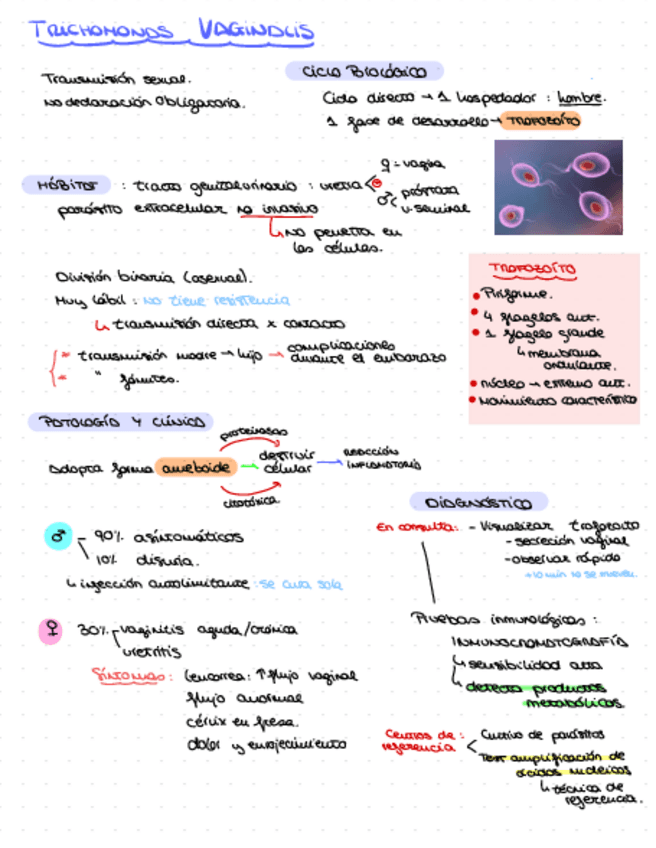 TRICHOMONAS VAGINALIS
Transmisión sexual.
No declaración obligatoria.
CICLO BIOLÓGICO
Ciclo directo → 1 hospedador : hombre.
1 fase de desarrollo → TROFOZOÍTO
HÁBITAT : tracto genitalurinario : uretra
♀ = vagina
♂ próstata
v. seminal
parásito extracelular no invasivo
↳ No penetra en
las células.
División binaria (asexual).
Muy lábil : no tiene resistencia
↳ transmisión directa x contacto
* transmisión madre → hijo → complicaciones
durante el embarazo
* " fómites.
TROFOZOÍTO
• Piriforme.
• 4 flagelos ant.
• 1 flagelo grande
↳ membrana
ondulante.
• núcleo → extremo ant.
• Movimiento característico
PATOLOGÍA Y CLÍNICA
proteinasas
adopta forma ameboide → destruir
célular → REACCIÓN
INFLAMATORIA
citotóxica
♂ - 90% asintomáticos
10% disuria.
↳ infección autolimitante : se cura sola
♀ 30% vaginitis aguda/crónica
uretritis
Síntomas : leucorrea : ↑ flujo vaginal
flujo anormal
cérvix en fresa.
dolor y enrojecimiento
DIAGNÓSTICO
En consulta: - Visualizar trofozoito
- secreción vaginal
- observar rápido
+10 min no se mueven.
Pruebas inmunológicas :
INMUNOCROMATOGRAFÍA
↳ sensibilidad alta
↳ detecta productos
metabólicos.
Centros de :
referencia
Cultivo de parásitos
Test amplificación de
ácidos nucleicos
↳ técnica de
referencia.